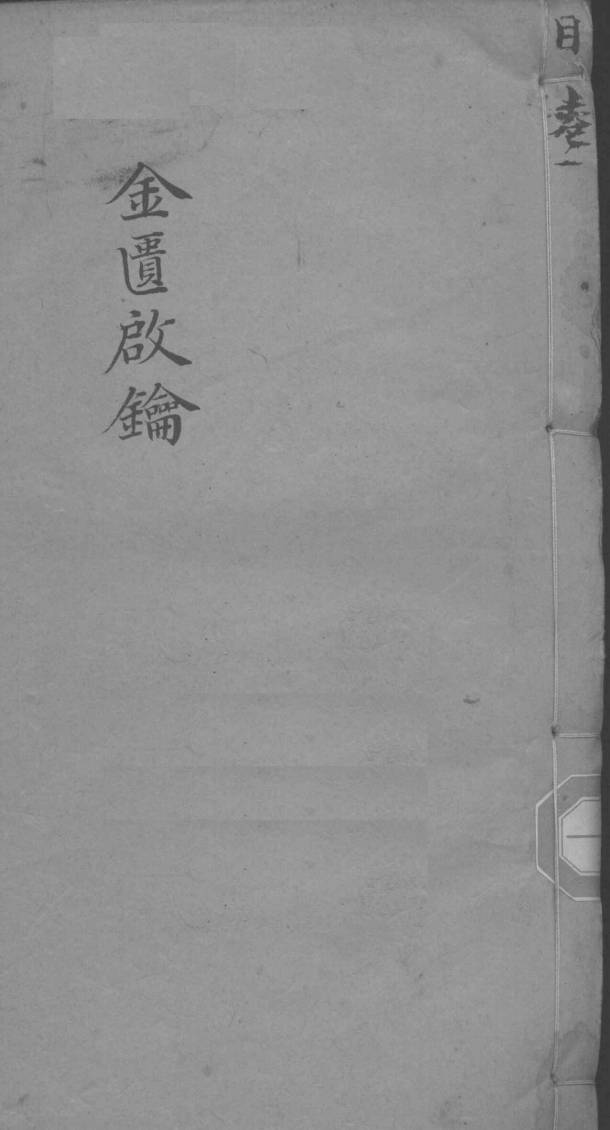 目 卷一
金匱啟鑰